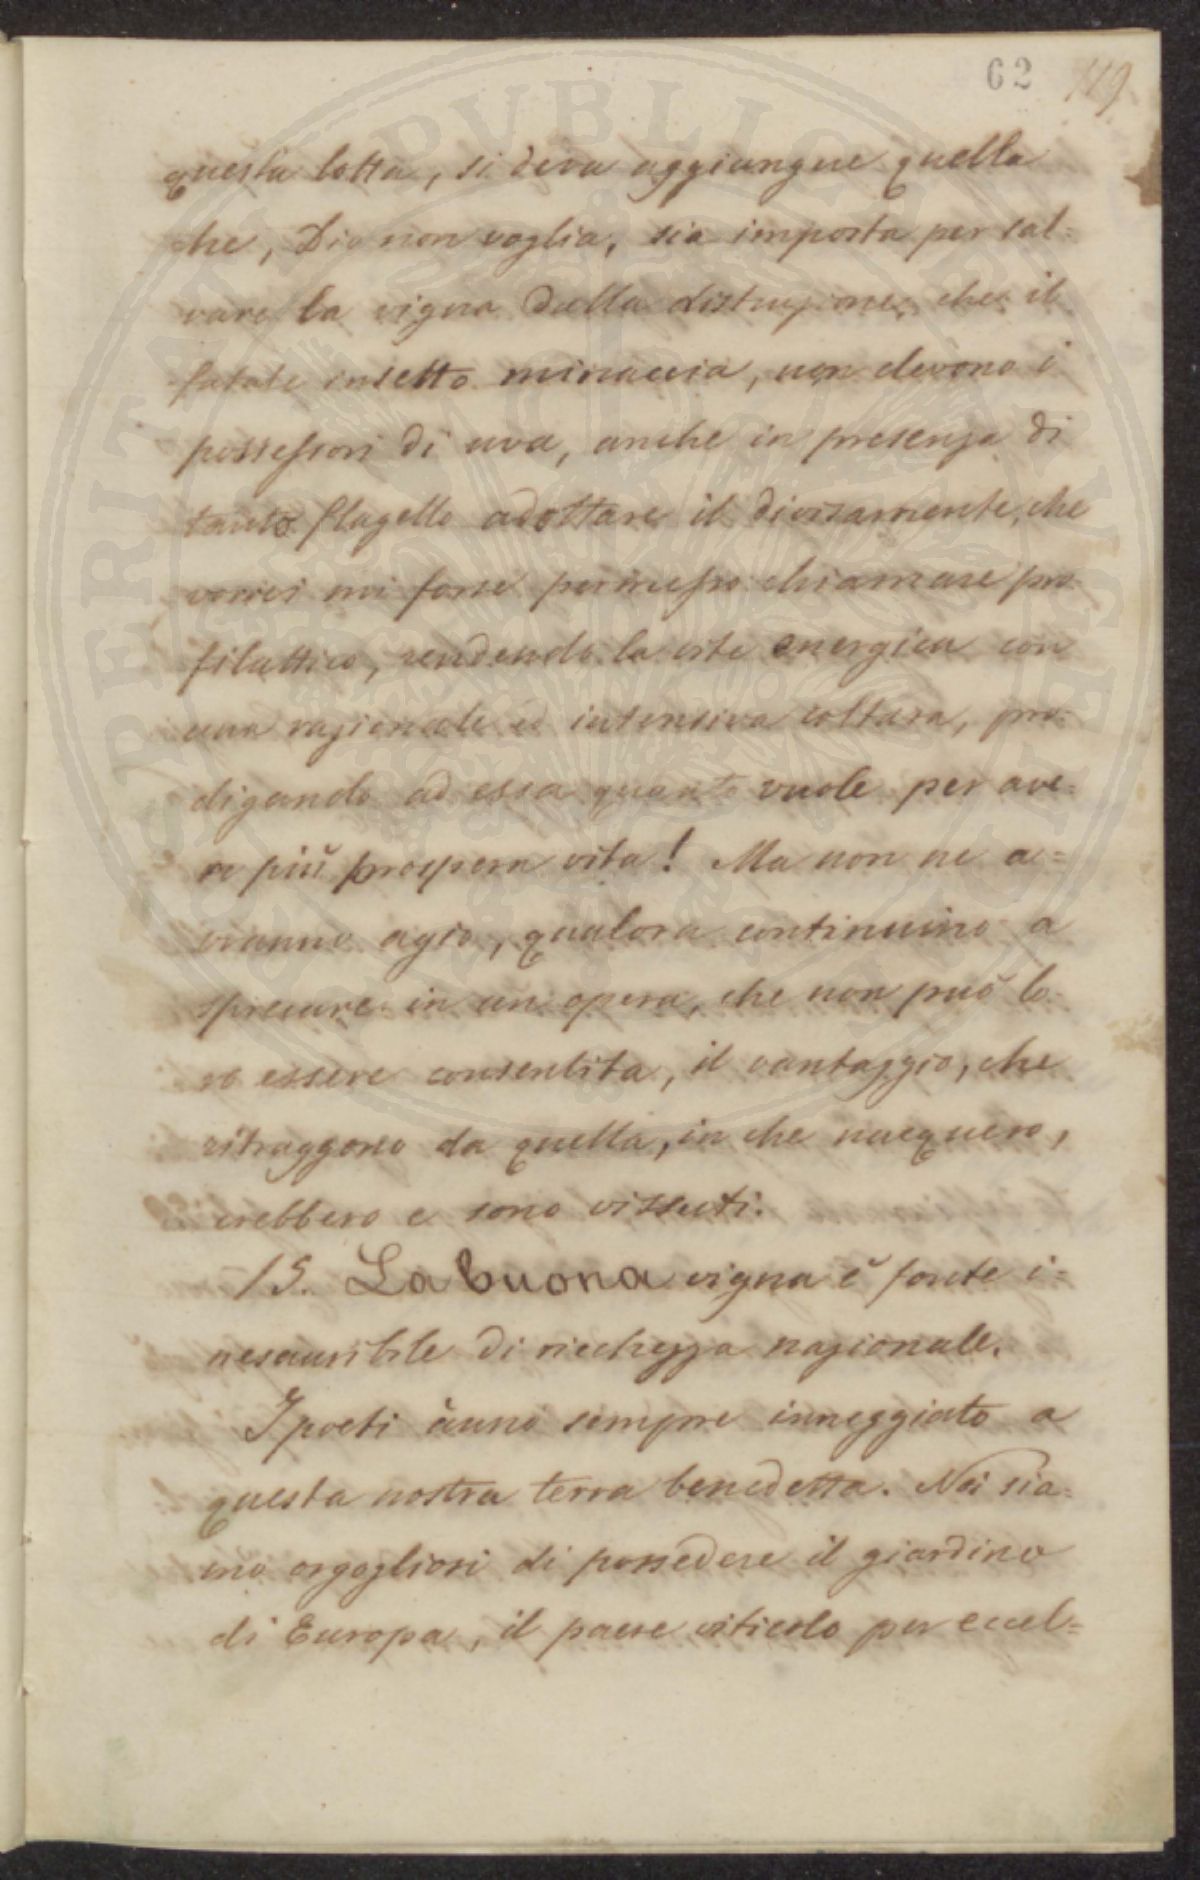 62 119.
questa lotta, si deva aggiungere quella
che, Dio non voglia, sia imposta per sal=
vare la vigna dalla distruzione, che il
fatale insetto minaccia, non devono i
possessori di uva, anche in presenza di
tanto flagello adottare il divisamento, che
vorrei mi fosse permesso chiamare pro=
filattico, rendendo la vite energica con
una razionale ed intensiva coltura, pro=
digando ad essa quanto vuole per ave=
re più prospera vita! Ma non ne a=
vranno agio, qualora continuino a
sprecare in un opera, che non può lo=
ro essere consentita, il vantaggio, che
ritraggono da quella, in che nacquero,
crebbero e sono vissuti.
15. La buona vigna è fonte i=
nesauribile di ricchezza nazionale.
I poeti ànno sempre inneggiato a
questa nostra terra benedetta. Noi sia=
mo orgogliosi di possedere il giardino
di Europa, il paese viticolo per eccel=